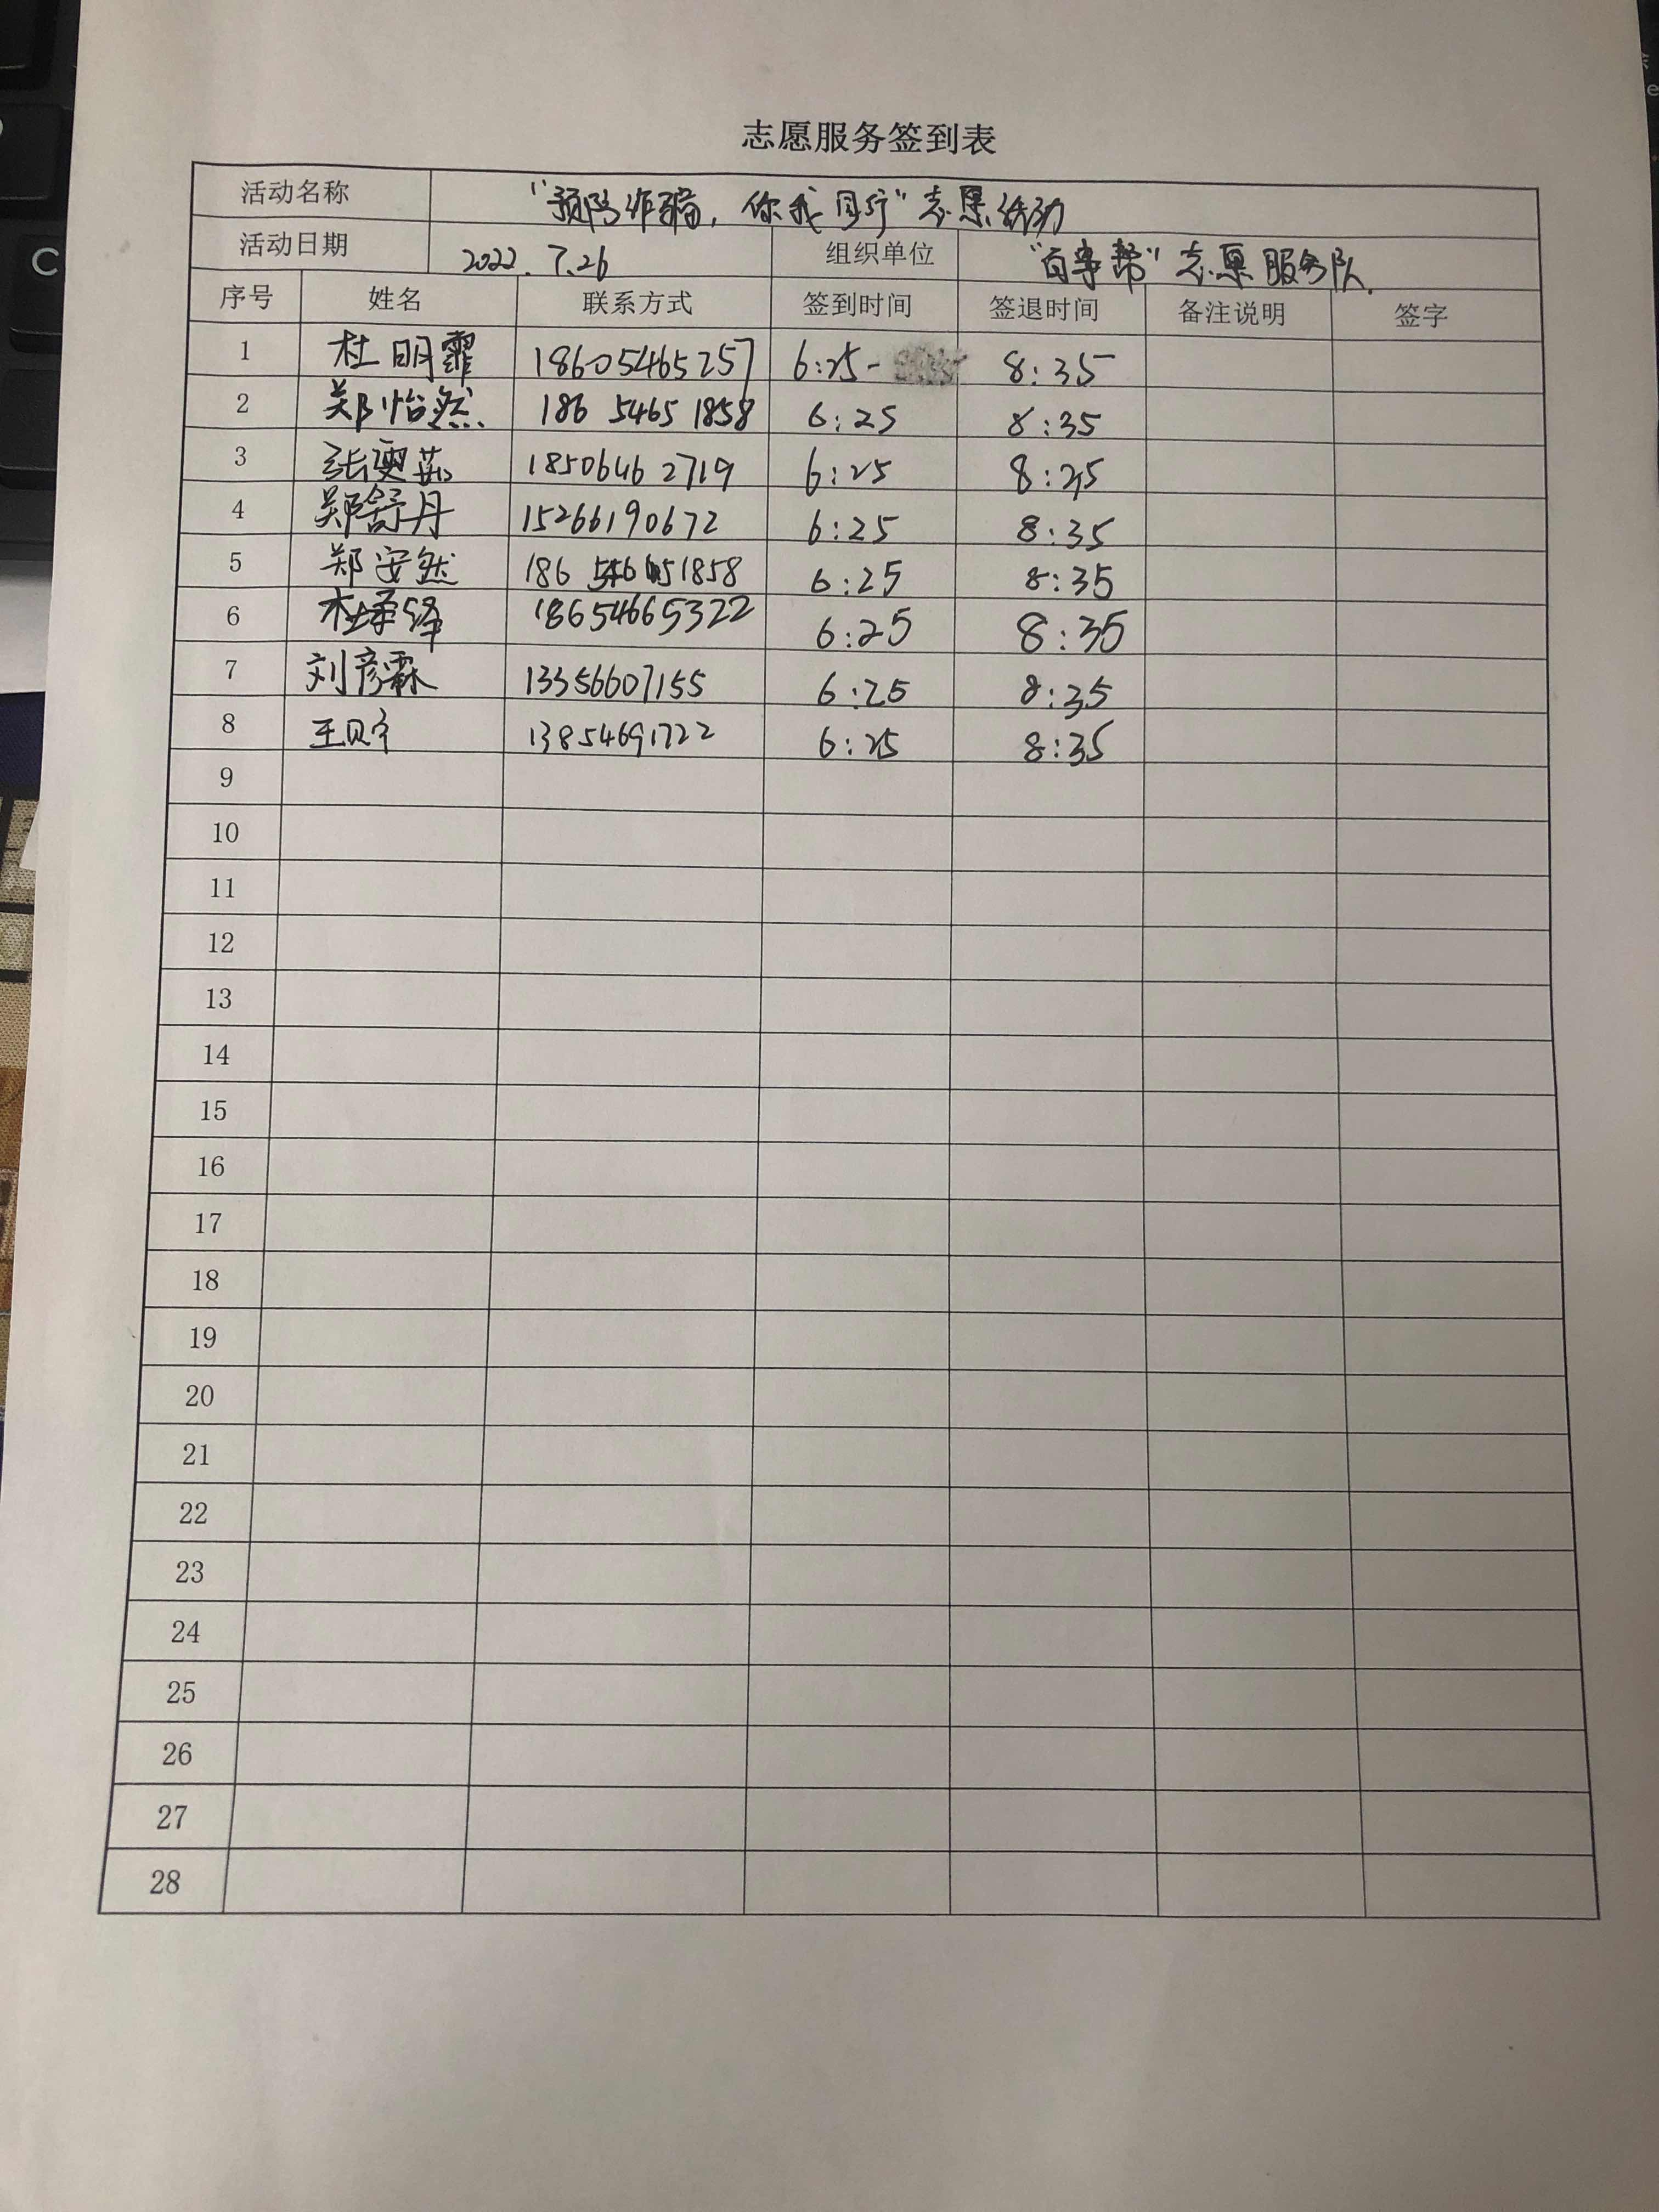 志愿服务签到表
活动名称 "预防诈骗,你我同行"志愿活动
活动日期 2022.7.26 组织单位 "百事帮"志愿服务队.
序号 姓名 联系方式 签到时间 签退时间 备注说明 签字
1 杜明霏 18605465257 6:25- 8:35
2 郑怡然 186 5465 1858 6:25 8:35
3 张奥茹 1850646 2719 6:25 8:35
4 郑舒丹 15266190672 6:25 8:35
5 郑安然 186 546 51858 6:25 8:35
6 杜承泽 18654665322 6:25 8:35
7 刘彦霖 13356607155 6:25 8:35
8 王贝宁 13854691722 6:25 8:35
9
10
11
12
13
14
15
16
17
18
19
20
21
22
23
24
25
26
27
28
C